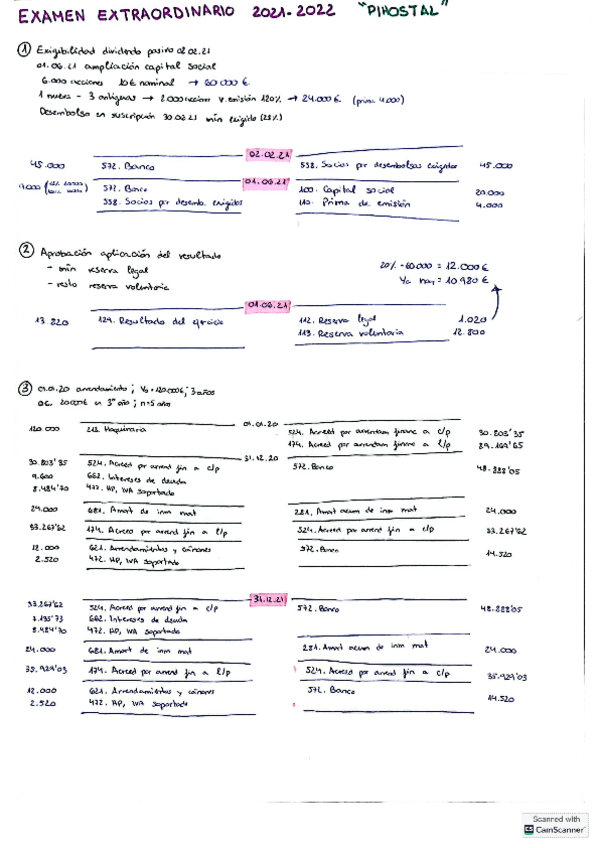 EXAMEN EXTRAORDINARIO 2021-2022 "PIHOSTAL"
① Exigibilidad dividendo pasivo 02.02.21
01.06.21 ampliación capital social
6.000 acciones 10€ nominal → 60.000€
1 nueva - 3 antiguas → 2.000 acciones v. emisión 120% → 24.000€ (prima 4.000)
Desembolso en suscripción 30.06.21 mín exigido (25%)
02.02.21
45.000 572. Banco 558. Socios por desembolsos exigidos 45.000
01.06.21
9.000 572. Banco 100. Capital social 20.000
558. Socios por desemb. exigidos 110. Prima de emisión 4.000
② Aprobación aplicación del resultado
- mín reserva legal 20% - 60.000 = 12.000€
- resto reserva voluntaria Ya hay = 10.980€
01.06.21
13.820 129. Resultado del ejercicio 112. Reserva legal 1.020
113. Reserva voluntaria 12.800
③ 01.01.20 arrendamiento; Vo = 120.000€; 3 años
OC. 20000€ en 3er año; n=5 años
01.01.20
120.000 213. Maquinaria 524. Acreed por arrendam financ a c/p 30.803'35
174. Acreed por arrendam financ a l/p 89.196'65
31.12.20
30.803'35 524. Acreed por arrend fin a c/p 572. Banco 48.888'05
9.600 662. Intereses de deuda
8.484'70 472. HP, IVA soportado
24.000 681. Amort de inm mat 281. Amort acum de inm mat 24.000
33.267'62 174. Acreed por arrend fin a l/p 524. Acreed por arrend fin a c/p 33.267'62
12.000 621. Arrendamientos y cánones 572. Banco 14.520
2.520 472. HP, IVA soportado
31.12.21
33.267'62 524. Acreed por arrend fin a c/p 572. Banco 48.888'05
7.135'73 662. Intereses de deuda
8.484'70 472. HP, IVA soportado
24.000 681. Amort de inm mat 281. Amort acum de inm mat 24.000
35.929'03 174. Acreed por arrend fin a l/p 524. Acreed por arrend fin a c/p 35.929'03
12.000 621. Arrendamientos y cánones 572. Banco 14.520
2.520 472. HP, IVA soportado
Scanned with
CamScanner